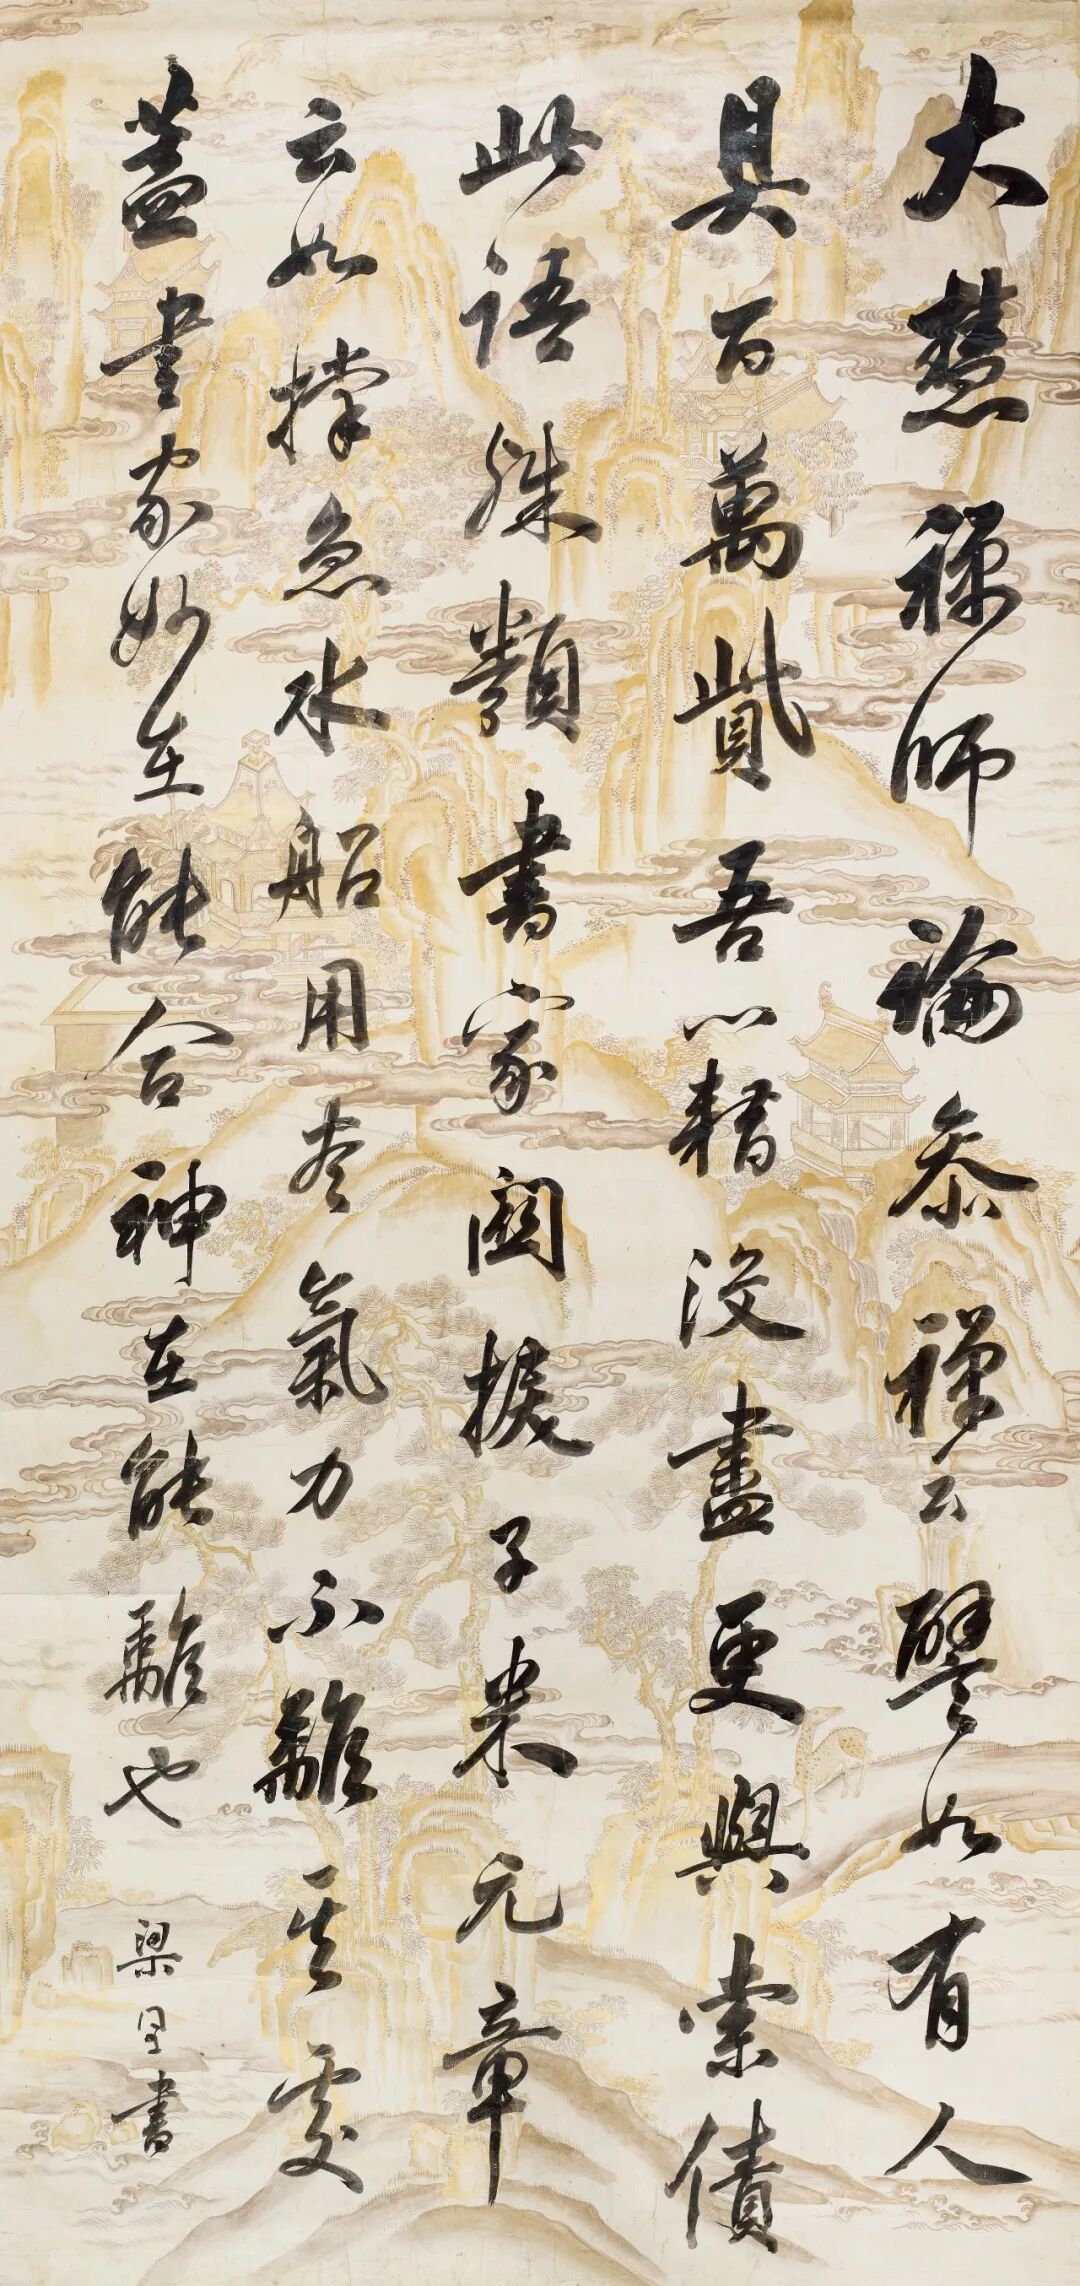 大慧禪師論參禪云譬如有人
具百萬貲吾以籍沒盡更與索債
此語殊類書家關捩子米元章
云如撐急水船用盡氣力不離其處
蓋書家妙在能合神在能離也
梁同書